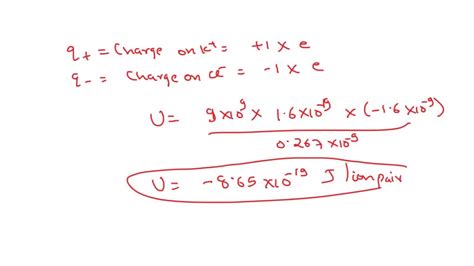 q+ = Charge on K+ = +1 × e
q- = Charge on Cl- = -1 × e
U = 9×10^9 × 1.6×10^-19 × (-1.6×10^-9)
0.267×10^-9
U = -8.65×10^-19 J/ion pair